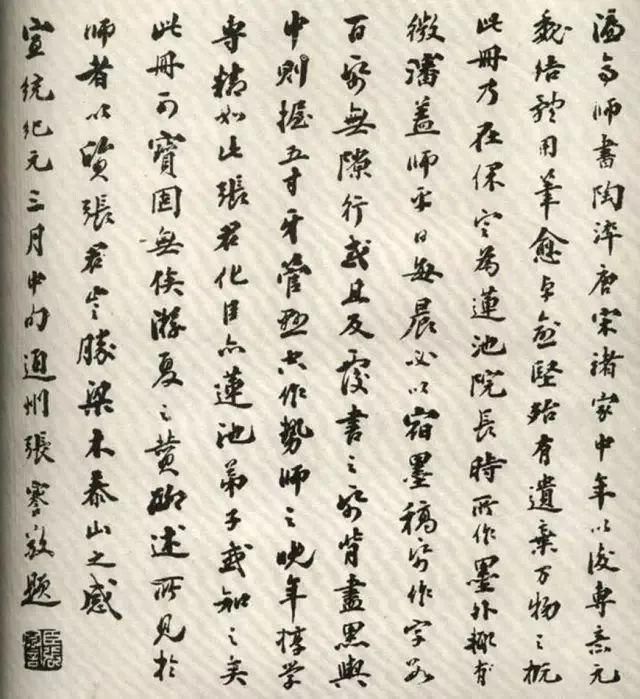 濂亭师书陶淬唐宋诸家中年以後專意元
魏结體用筆愈卓愈堅殆有遺棄万物之概
此册乃在保定為蓮池院長時所作墨外輒有
微瀋盖師平日每晨必以宿墨稿紙作字數
百紙無隙行或且反覆書之紙背盡黑輿
中則握五寸牙管懸空作勢師之晚年惇學
專精如此張君化臣亦蓮池弟子或知之矣
此册可寶固無俟游夏之贊聊述所見於
師者以質張君豈勝梁木泰山之感
宣統紀元三月中旬通州張謇敬題